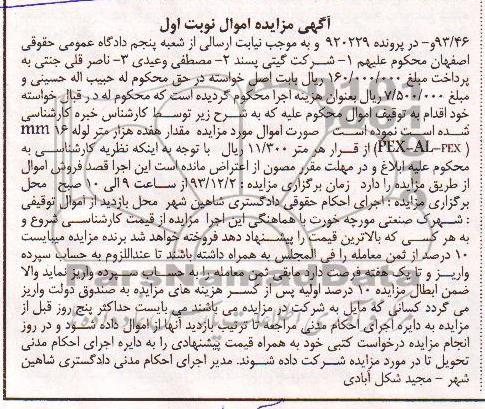 آگهی مزایده اموال نوبت اول
۹۳/۴۶و- در پرونده ۹۲۰۲۲۹ و به موجب نیابت ارسالی از شعبه پنجم دادگاه عمومی حقوقی
اصفهان محکوم علیهم ۱- شرکت گیتی پسند ۲- مصطفی وعیدی ۳- ناصر قلی جنتی به
پرداخت مبلغ ۱۶۰/۰۰۰/۰۰۰ ریال بابت اصل خواسته در حق محکوم له حبیب اله حسینی و
مبلغ ۷/۵۰۰/۰۰۰ ریال بعنوان هزینه اجرا محکوم گردیده است که محکوم له در قبال خواسته
خود اقدام به توقیف اموال محکوم علیه که به شرح زیر توسط کارشناس خبره کارشناسی
شده است نموده است. صورت اموال مورد مزایده مقدار هفده هزار متر لوله ۱۶ mm
(PEX-AL-PEX) از قرار هر متر ۱۱/۳۰۰ ریال با توجه به اینکه نظریه کارشناسی به
محکوم علیه ابلاغ و در مهلت مقرر مصون از اعتراض مانده است این اجرا قصد فروش اموال
از طریق مزایده را دارد زمان برگزاری مزایده : ۹۳/۱۲/۲ از ساعت ۹ الی ۱۰ صبح محل
برگزاری مزایده : اجرای احکام حقوقی دادگستری شاهین شهر محل بازدید از اموال توقیفی
: شهرک صنعتی مورچه خورت با هماهنگی این اجرا مزایده از قیمت کارشناسی شروع و
به هر کسی که بالاترین قیمت را پیشنهاد دهد فروخته خواهد شد برنده مزایده میبایست
۱۰ درصد از ثمن معامله را فی المجلس به همراه داشته باشند تا عنداللزوم به حساب سپرده
واریز و تا یک هفته فرصت دارد مابقی ثمن معامله را به حساب سپرده واریز نماید والا
ضمن ابطال مزایده ۱۰ درصد اولیه پس از کسر هزینه های مزایده به صندوق دولت واریز
می گردد کسانی که مایل به شرکت در مزایده می باشند می بایست حداکثر پنج روز قبل از
مزایده به دایره اجرای احکام مدنی مراجعه تا ترتیب بازدید آنها از اموال داده شود و در روز
انجام مزایده درخواست کتبی خود به همراه قیمت پیشنهادی را به دایره اجرای احکام مدنی
تحویل تا در مورد مزایده شرکت داده شوند. مدیر اجرای احکام مدنی دادگستری شاهین
شهر - مجید شکل آبادی